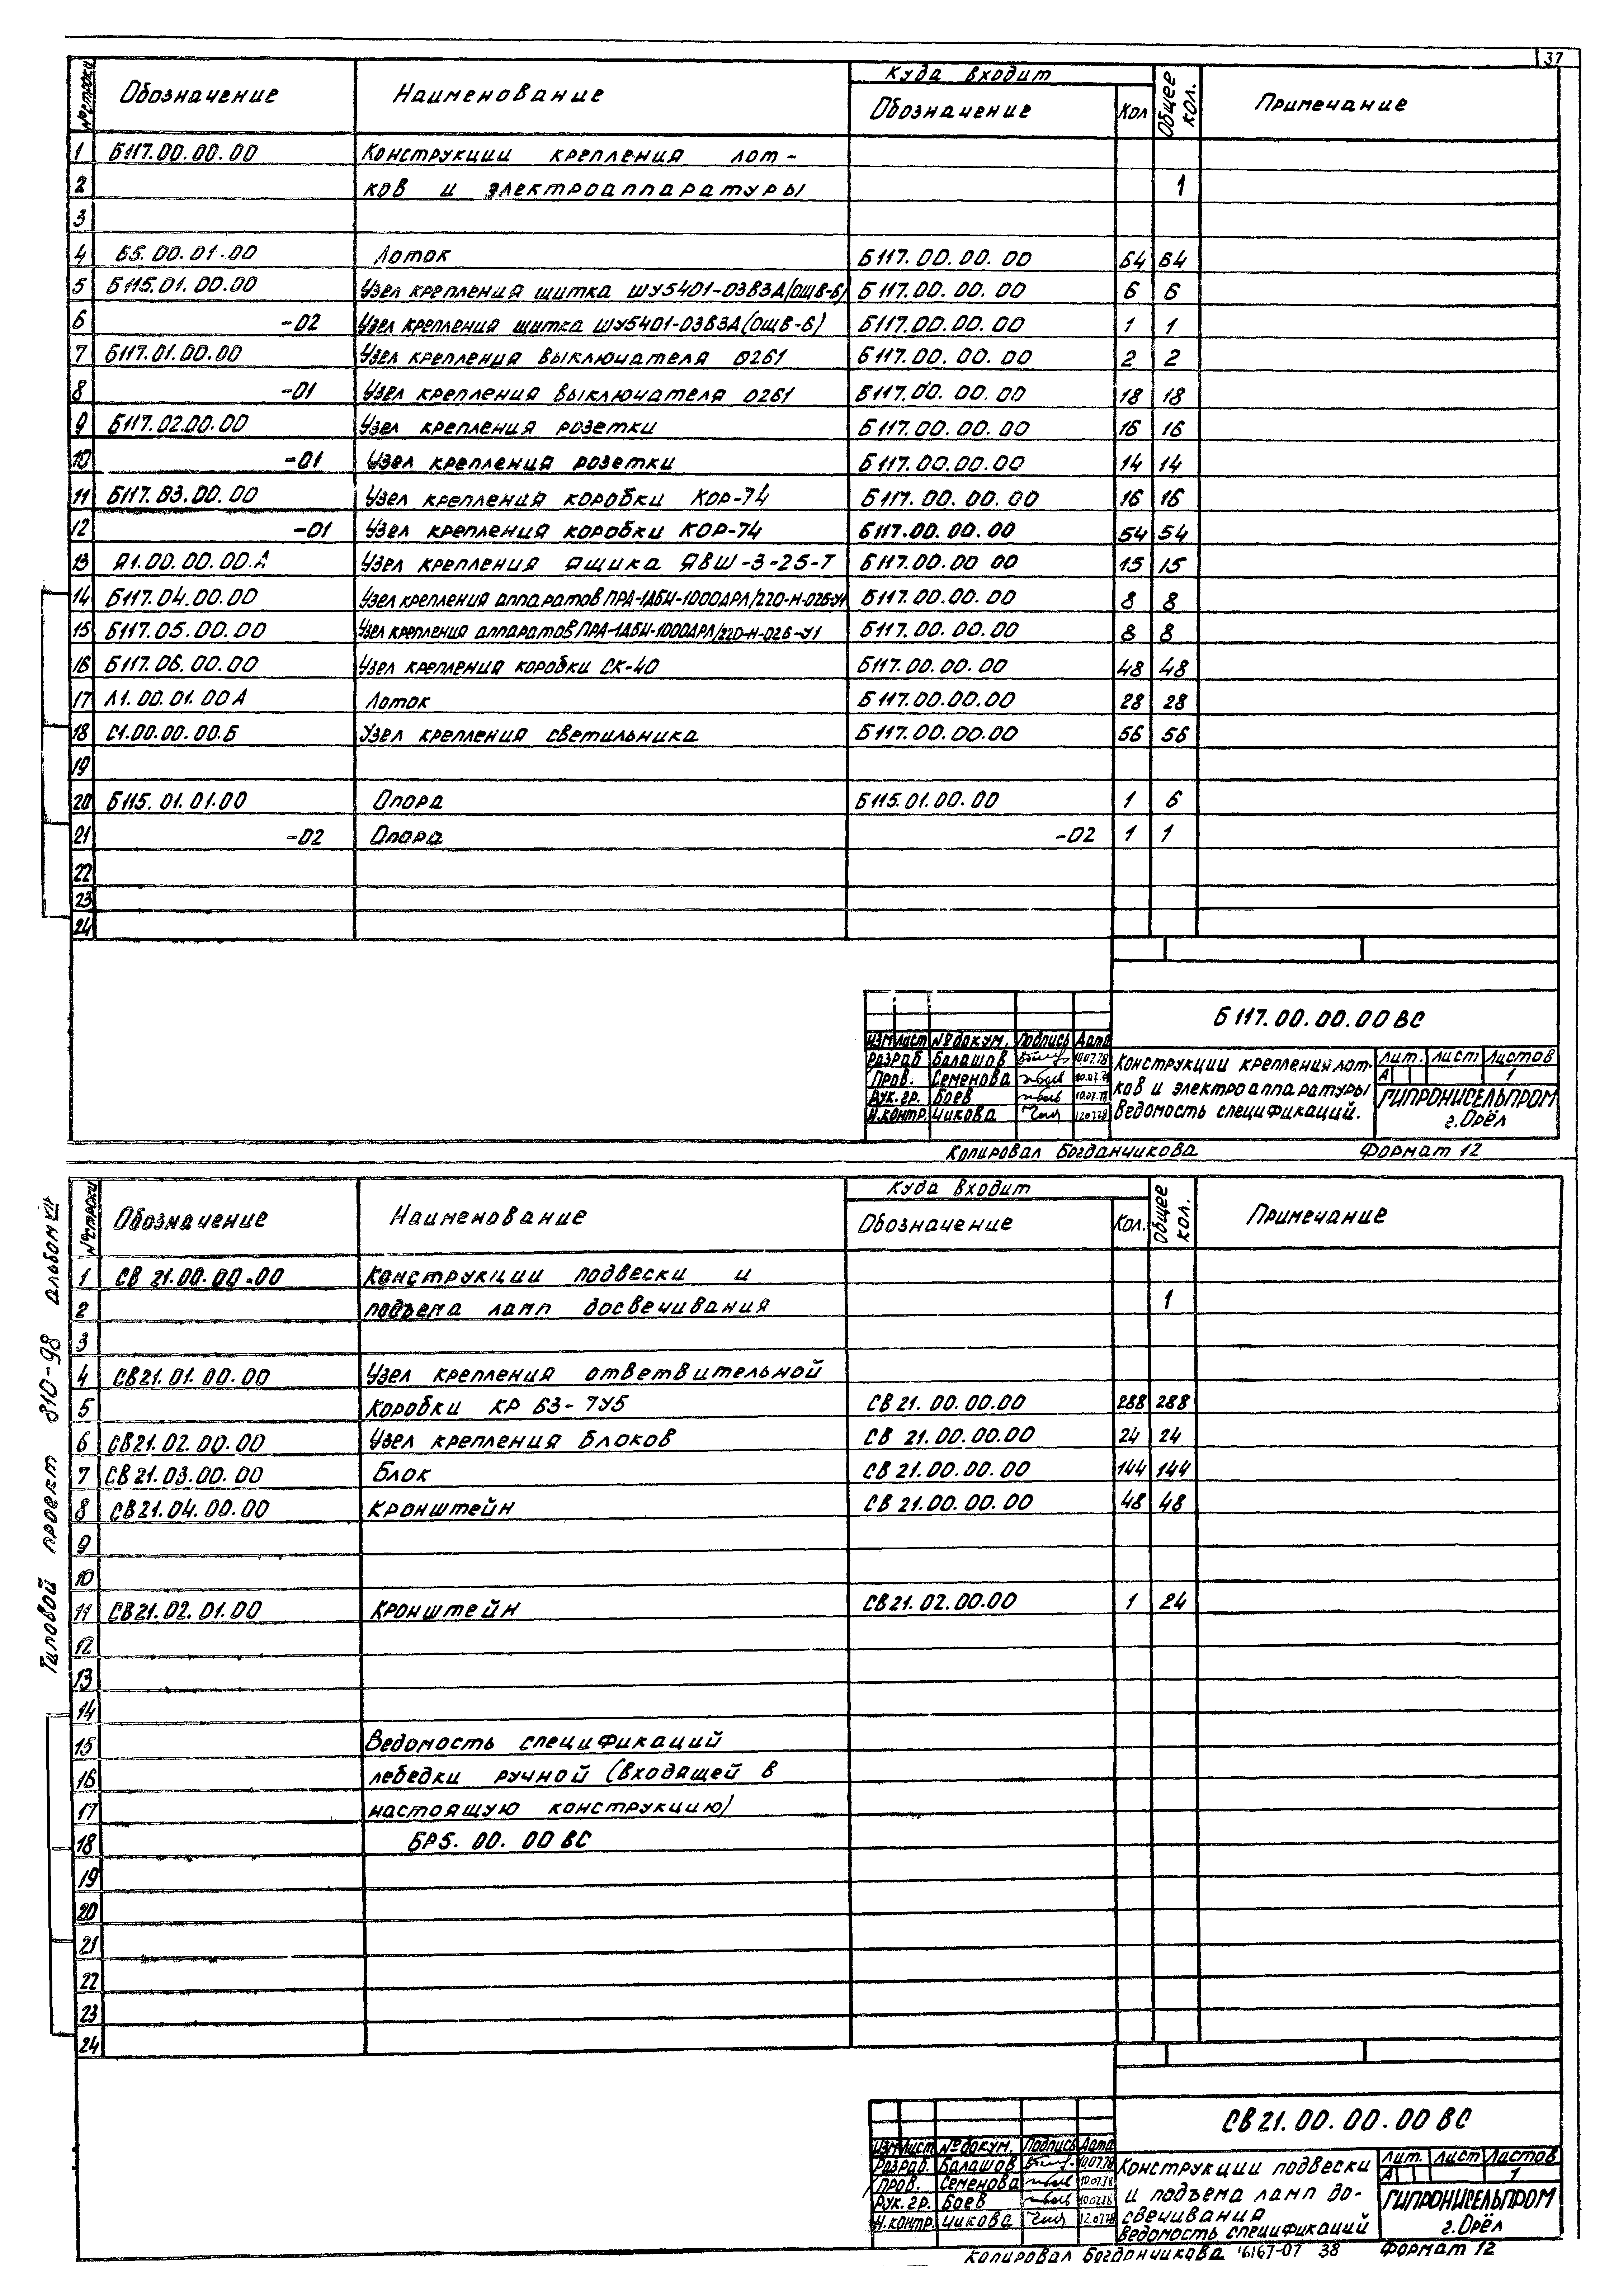 37
№ строки Обозначение Наименование Куда входит Общее кол. Примечание
Обозначение Кол
1 Б117.00.00.00 Конструкции крепления лот-
2 ков и электроаппаратуры 1
3
4 Б5.00.01.00 Лоток Б117.00.00.00 64 64
5 Б115.01.00.00 Узел крепления щитка ШУ5401-03В3А(ОЩВ-6) Б117.00.00.00 6 6
6 -02 Узел крепления щитка ШУ5401-03В3А(ОЩВ-6) Б117.00.00.00 1 1
7 Б117.01.00.00 Узел крепления выключателя 0261 Б117.00.00.00 2 2
8 -01 Узел крепления выключателя 0261 Б117.00.00.00 18 18
9 Б117.02.00.00 Узел крепления розетки Б117.00.00.00 16 16
10 -01 Узел крепления розетки Б117.00.00.00 14 14
11 Б117.03.00.00 Узел крепления коробки Кор-74 Б117.00.00.00 16 16
12 -01 Узел крепления коробки КОР-74 Б117.00.00.00 54 54
13 Я1.00.00.00.А Узел крепления ящика ЯВШ-3-25-Т Б117.00.00 00 15 15
14 Б117.04.00.00 Узел крепления аппаратов ПРА-1ДБИ-1000ДРЛ/220-Н-026-У1 Б117.00.00.00 8 8
15 Б117.05.00.00 Узел крепления аппаратов ПРА-1ДБИ-1000ДРЛ/220-Н-026-У1 Б117.00.00.00 8 8
16 Б117.06.00.00 Узел крепления коробки СК-40 Б117.00.00.00 48 48
17 Л1.00.01.00А Лоток Б117.00.00.00 28 28
18 С1.00.00.00.Б Узел крепления светильника Б117.00.00.00 56 56
19
20 Б115.01.01.00 Опора Б115.01.00.00 1 6
21 -02 Опора -02 1 1
22
23
24
Б117.00.00.00ВС
Изм Лист № докум. Подпись Дата
Разраб Балашов 10.07.78
Пров. Семенова 10.07.78
Рук.гр. Боев 10.07.78
Н.контр. Чикова 12.07.78
Конструкции крепления лот-
ков и электроаппаратуры
Ведомость спецификаций.
Лит. Лист Листов
А 1
ГИПРОНИСЕЛЬПРОМ
г.Орёл
Копировал Богданчикова Формат 12
Типовой проект 810-98 альбом VII
№ строки Обозначение Наименование Куда входит Общее кол. Примечание
Обозначение Кол.
1 СВ 21.00.00.00 Конструкции подвески и
2 подъема ламп досвечивания 1
3
4 СВ21.01.00.00 Узел крепления ответвительной
5 коробки КР 63-7У5 СВ 21.00.00.00 288 288
6 СВ21.02.00.00 Узел крепления блоков СВ 21.00.00.00 24 24
7 СВ21.03.00.00 Блок СВ 21.00.00.00 144 144
8 СВ21.04.00.00 Кронштейн СВ 21.00.00.00 48 48
9
10
11 СВ21.02.01.00 Кронштейн СВ21.02.00.00 1 24
12
13
14
15 Ведомость спецификаций
16 лебедки ручной (входящей в
17 настоящую конструкцию)
18 БР5.00.00ВС
19
20
21
22
23
24
СВ21.00.00.00ВС
Изм Лист № докум. Подпись Дата
Разраб. Балашов 10.07.78
Пров. Семенова 10.07.78
Рук.гр. Боев 10.07.78
Н.контр. Чикова 12.07.78
Конструкции подвески
и подъема ламп до-
свечивания
Ведомость спецификаций
Лит. Лист Листов
А 1
ГИПРОНИСЕЛЬПРОМ
г.Орёл
Копировал Богданчикова 6167-07 38 Формат 12